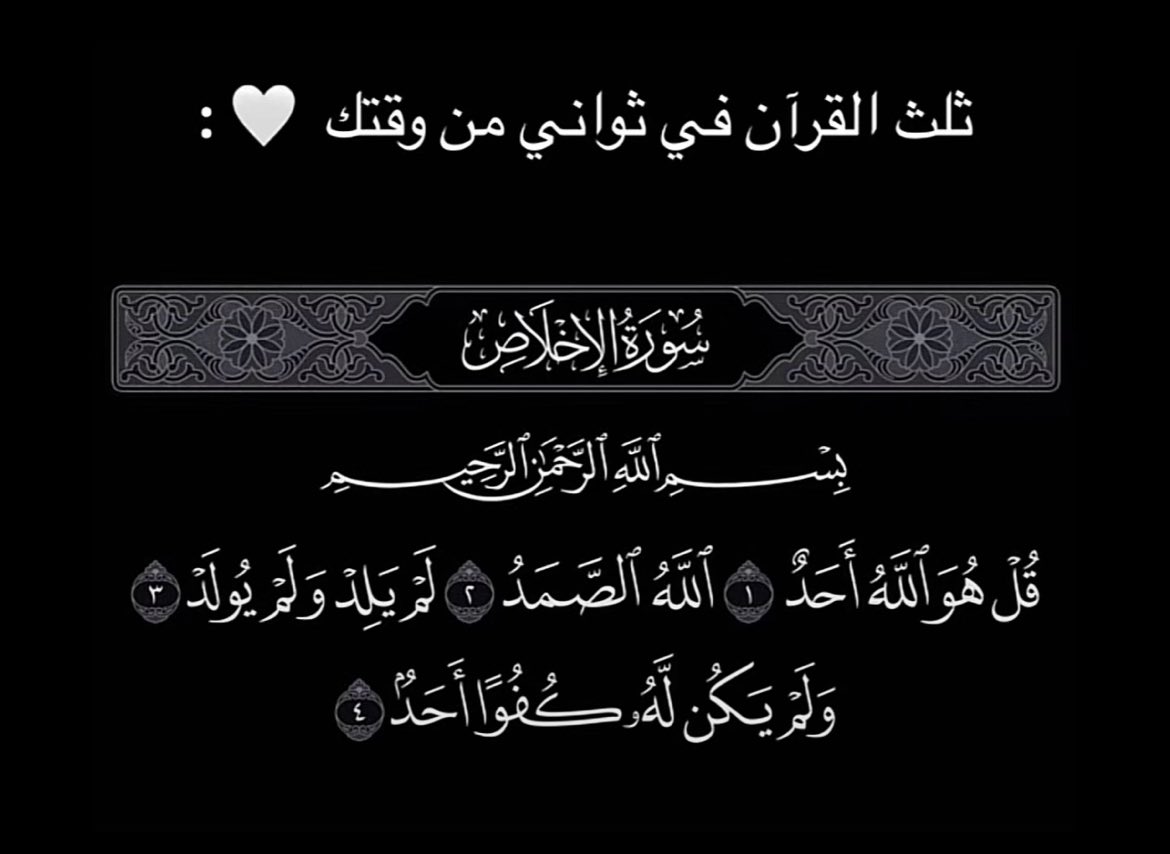 ثلث القرآن في ثواني من وقتك 🤍 :
سُورَةُ الإِخْلَاصِ
بِسْمِ ٱللَّهِ ٱلرَّحْمَٰنِ ٱلرَّحِيمِ
قُلْ هُوَ ٱللَّهُ أَحَدٌ ١ ٱللَّهُ ٱلصَّمَدُ ٢ لَمْ يَلِدْ وَلَمْ يُولَدْ ٣
وَلَمْ يَكُن لَّهُۥ كُفُوًا أَحَدٌۢ ٤